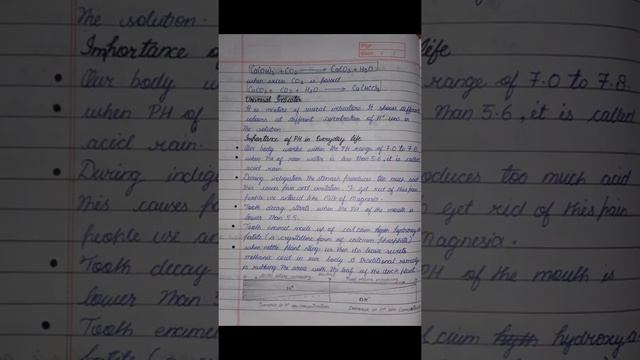 Ca(OH)2 + CO2 → CaCO3 + H2O
when excess CO2 is passed
CaCO3 + CO2 + H2O → Ca(HCO3)
Universal Indicator
It is mixture of several indicators. It shows different
colours at different concentration of H+ ions in
the solution.
Importance of PH in Everyday life
Our body works within the PH range of 7.0 to 7.8.
when PH of rain water is less than 5.6, it is called
acid rain.
During indigestion the stomach produces too much acid
this causes pain and irritation. To get rid of this pain
people use antacid like Milk of Magnesia.
Tooth decay starts when the PH of the mouth is
lower than 5.5.
Tooth enamel made up of calcium hyth hydroxya
patite (a crystalline form of calcium phosphate)
when nettle plant stings us then its leaf secrets
methanoic acid in our body. A traditional remedy
is rubbing the area with the leaf of the dock plant
H+
OH-
Increase in H+ ion concentration
Decrease in H+ ion
The solution.
Importance of
life
Our body w
range of 7.0 to 7.8.
when PH of
than 5.6, it is called
acid rain.
During indig
oduces too much acid
This causes pa
get rid of this pain
people use an
agnesia.
Tooth decay
PH of the mouth is
lower than
Tooth enam
lcium hyth hydroxya